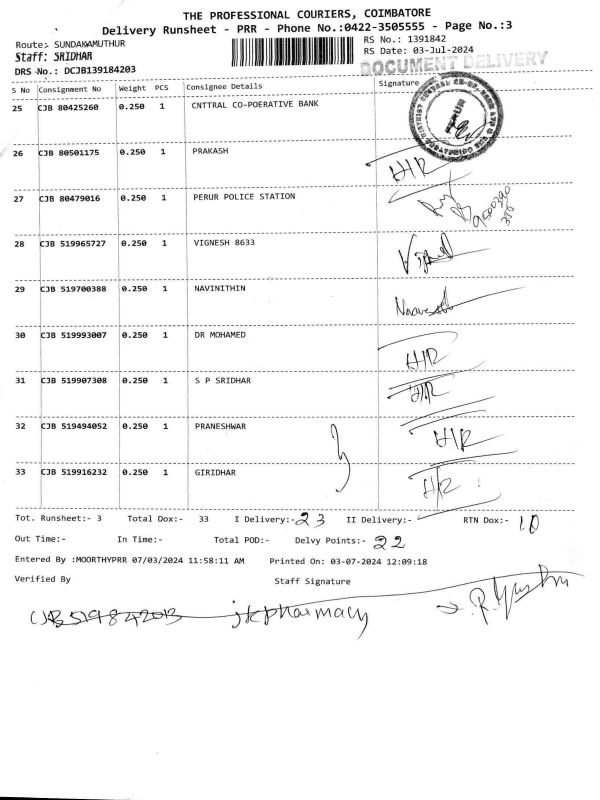 THE PROFESSIONAL COURIERS, COIMBATORE
Delivery Runsheet - PRR - Phone No.:0422-3505555 - Page No.:3
Route: SUNDAKAMUTHUR RS No.: 1391842
Staff: SRIDHAR RS Date: 03-Jul-2024
DRS No.: DCJB139184203 DOCUMENT DELIVERY
S No Consignment No Weight PCS Consignee Details Signature
25 CJB 80425260 0.250 1 CNTTRAL CO-POERATIVE BANK
PERUR
26 CJB 80501175 0.250 1 PRAKASH H/R
27 CJB 80479016 0.250 1 PERUR POLICE STATION
28 CJB 519965727 0.250 1 VIGNESH 8633
29 CJB 519700388 0.250 1 NAVINITHIN
30 CJB 519993007 0.250 1 DR MOHAMED H/R
31 CJB 519907308 0.250 1 S P SRIDHAR H/R
32 CJB 519494052 0.250 1 PRANESHWAR H/R
33 CJB 519916232 0.250 1 GIRIDHAR H/R
Tot. Runsheet:- 3 Total Dox:- 33 I Delivery:- 23 II Delivery:- RTN Dox:- 10
Out Time:- In Time:- Total POD:- Delvy Points:- 22
Entered By :MOORTHYPRR 07/03/2024 11:58:11 AM Printed On: 03-07-2024 12:09:18
Verified By Staff Signature
CJB 519842013 jk pharmacy